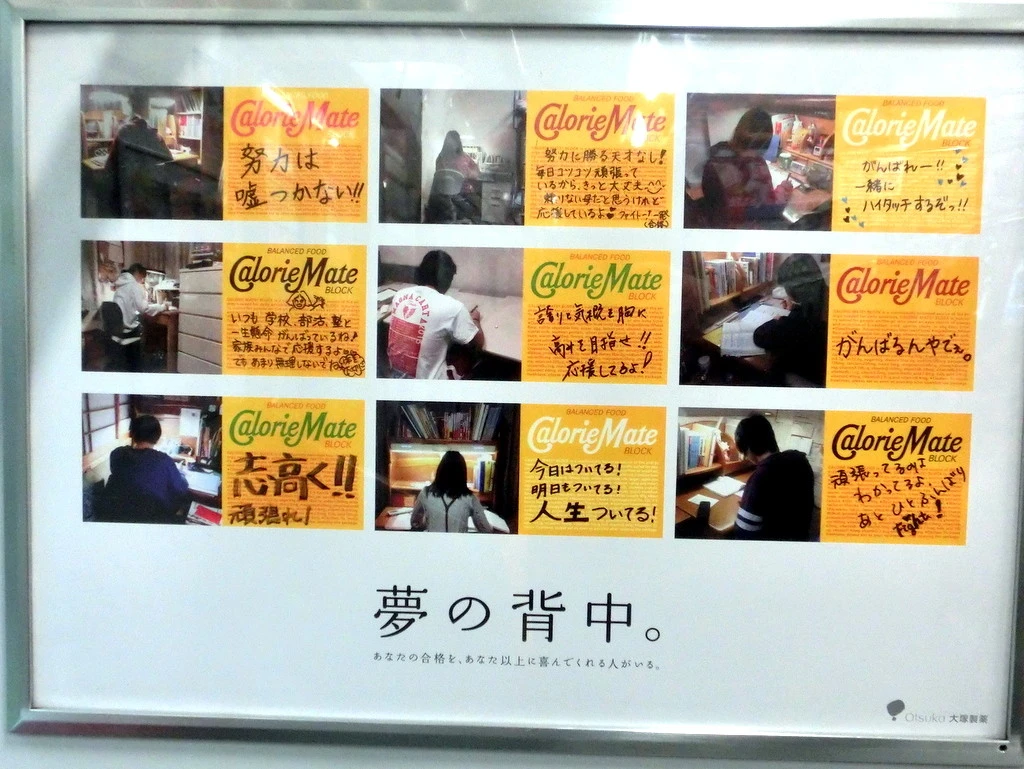 BALANCED FOOD
CalorieMate
BLOCK
努力は
嘘つかない!!
BALANCED FOOD
CalorieMate
BLOCK
努力に勝る天才なし!
毎日コツコツ頑張って
いるから、きっと大丈夫
頼りない母だと思うけれど
応援しているよ♥ファイトー!一発
(合格)
BALANCED FOOD
CalorieMate
BLOCK
がんばれー!!
一緒に
ハイタッチするぞっ!!
BALANCED FOOD
CalorieMate
BLOCK
いつも 学校、部活、塾と
一生懸命 がんばっているね!
家族みんなで応援するよ
でも あまり無理しないでね
BALANCED FOOD
CalorieMate
BLOCK
誇りと気概を胸に
高みを目指せ!!
応援してるよ!
BALANCED FOOD
CalorieMate
BLOCK
がんばるんやでぇ。
BALANCED FOOD
CalorieMate
BLOCK
志高く!!
頑張れ!
BALANCED FOOD
CalorieMate
BLOCK
今日はついてる!
明日もついてる!
人生ついてる!
BALANCED FOOD
CalorieMate
BLOCK
頑張ってるのは
わかってるよ
あと ひとふんばり
Fight!
夢の背中。
あなたの合格を、あなた以上に喜んでくれる人がいる。
Otsuka 大塚製薬